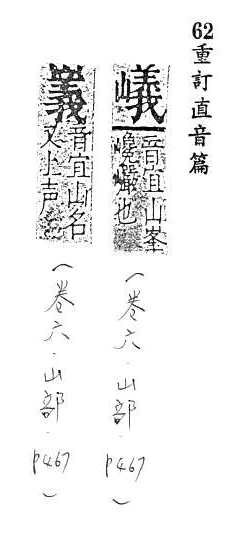 62重訂直音篇
㠖音宜山峯
巉也
（卷六．山部．p467）
音宜山名
又上声
（卷六．山部．p467）